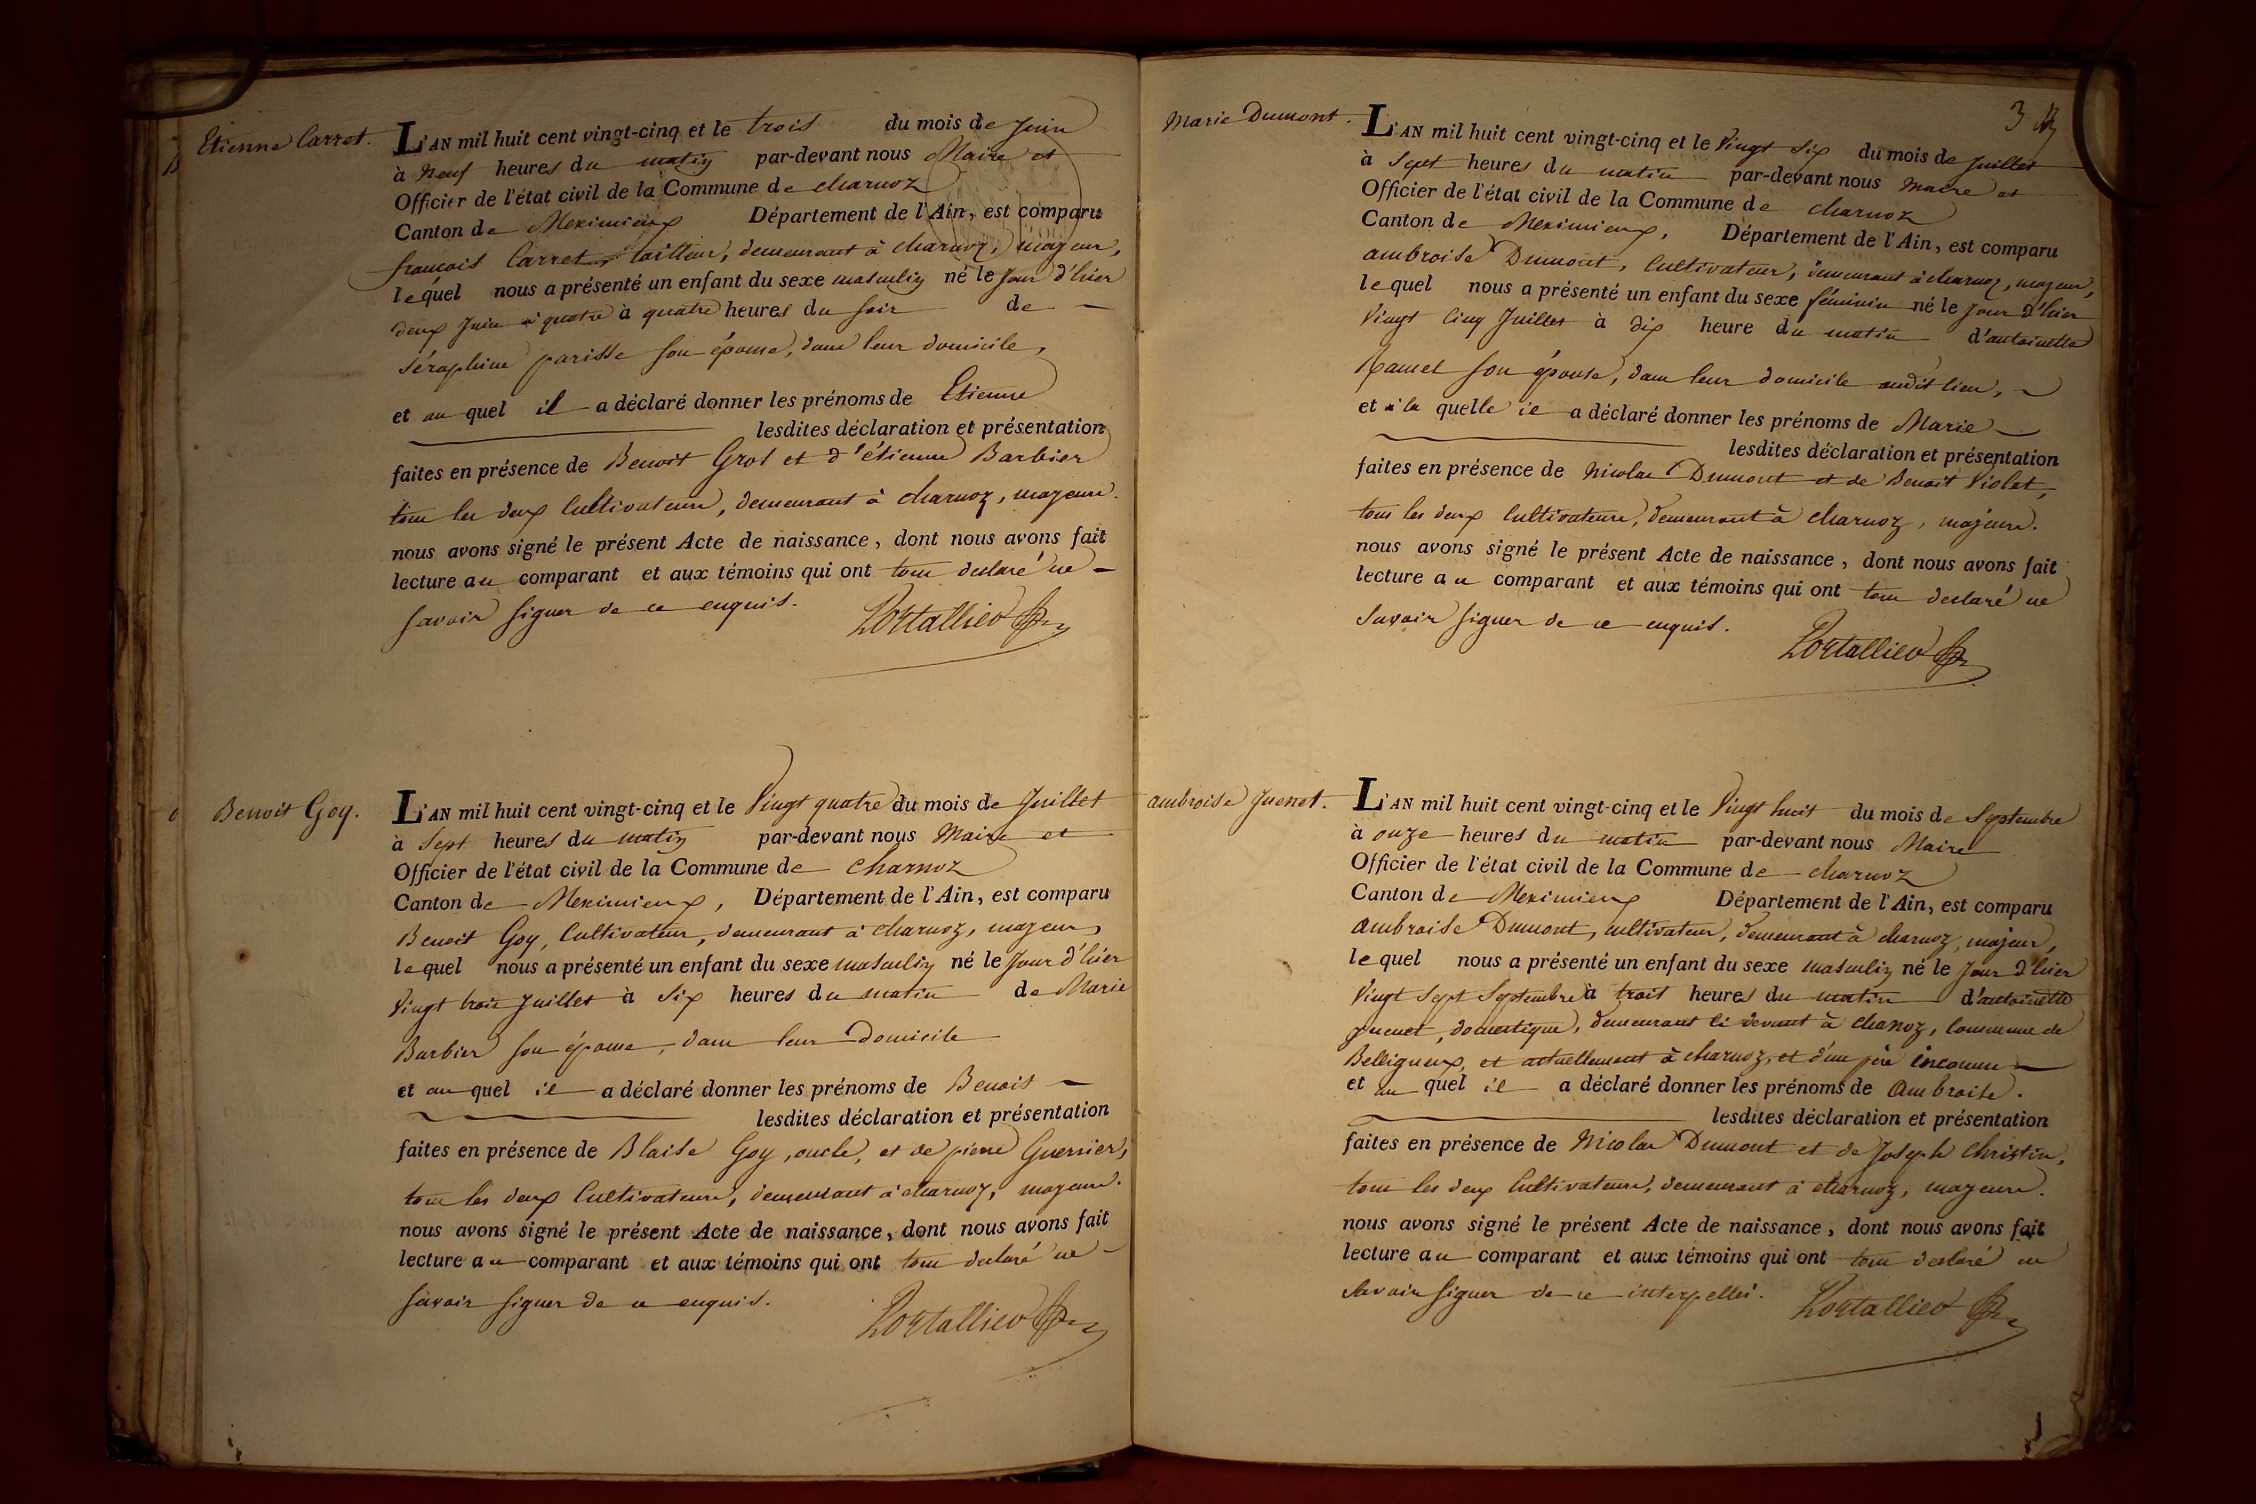 Etienne Carret.
L'AN mil huit cent vingt-cinq et le trois du mois de Juin
à neuf heures du matin par-devant nous Maire et
Officier de l'état civil de la Commune de charnoz
Canton de Meximieux Département de l'Ain, est comparu
françois Carret, tailleur, demeurant à charnoz, majeur,
lequel nous a présenté un enfant du sexe masculin né le jour d'hier
deux Juin à quatre à quatre heures du soir de
Séraphine parisse son épouse, dans leur domicile,
et au quel il a déclaré donner les prénoms de Etienne
lesdites déclaration et présentation
faites en présence de Benoit Grol et d'étienne Barbier
tous les deux Cultivateurs, demeurant à charnoz, majeurs.
nous avons signé le présent Acte de naissance, dont nous avons fait
lecture au comparant et aux témoins qui ont tous declaré ne
savoir signer de ce enquis.
Portallier
Benoit Goy.
L'AN mil huit cent vingt-cinq et le Vingt quatre du mois de Juillet
à Sept heures du matin par-devant nous Maire et
Officier de l'état civil de la Commune de charnoz
Canton de Meximieux, Département de l'Ain, est comparu
Benoit Goy, Cultivateur, demeurant à charnoz, majeur,
lequel nous a présenté un enfant du sexe masculin né le jour d'hier
Vingt trois Juillet à Six heures du matin de Marie
Barbier son épouse, dans leur Domicile
et au quel il a déclaré donner les prénoms de Benoit
lesdites déclaration et présentation
faites en présence de Blaise Goy, oncle, et de pierre Guerrier,
tous les deux Cultivateurs, demeurant à charnoz, majeurs.
nous avons signé le présent Acte de naissance, dont nous avons fait
lecture au comparant et aux témoins qui ont tous declaré ne
savoir signer de ce enquis.
Portallier
3
Marie Dumont.
L'AN mil huit cent vingt-cinq et le Vingt Six du mois de Juillet
à Sept heures du matin par-devant nous Maire et
Officier de l'état civil de la Commune de charnoz
Canton de Meximieux, Département de l'Ain, est comparu
ambroise Dumont, Cultivateur, demeurant à charnoz, majeur,
lequel nous a présenté un enfant du sexe féminin né le jour d'hier
Vingt Cinq Juillet à dix heure du matin d'antoinette
Ramel son épouse, dans leur domicile audit lieu,
et à la quelle il a déclaré donner les prénoms de Marie
lesdites déclaration et présentation
faites en présence de Nicolas Dumont et de Benoit Violet,
tous les deux Cultivateurs, demeurant à charnoz, majeurs.
nous avons signé le présent Acte de naissance, dont nous avons fait
lecture au comparant et aux témoins qui ont tous declaré ne
savoir signer de ce enquis.
Portallier
ambroise Juenet.
L'AN mil huit cent vingt-cinq et le Vingt huit du mois de Septembre
à onze heures du matin par-devant nous Maire
Officier de l'état civil de la Commune de charnoz
Canton de Meximieux Département de l'Ain, est comparu
ambroise Dumont, cultivateur, demeurant à charnoz, majeur,
lequel nous a présenté un enfant du sexe masculin né le jour d'hier
Vingt Sept Septembre à trois heures du matin d'antoinette
Juenet, domestique, demeurant ci devant à chanoz, Commune de
Belligneux, et actuellement à charnoz, et d'un père inconnu
et au quel il a déclaré donner les prénoms de Ambroise.
lesdites déclaration et présentation
faites en présence de Nicolas Dumont et de Joseph Christin,
tous les deux Cultivateurs, demeurant à charnoz, majeurs.
nous avons signé le présent Acte de naissance, dont nous avons fait
lecture au comparant et aux témoins qui ont tous declaré ne
savoir signer de ce interpellés.
Portallier